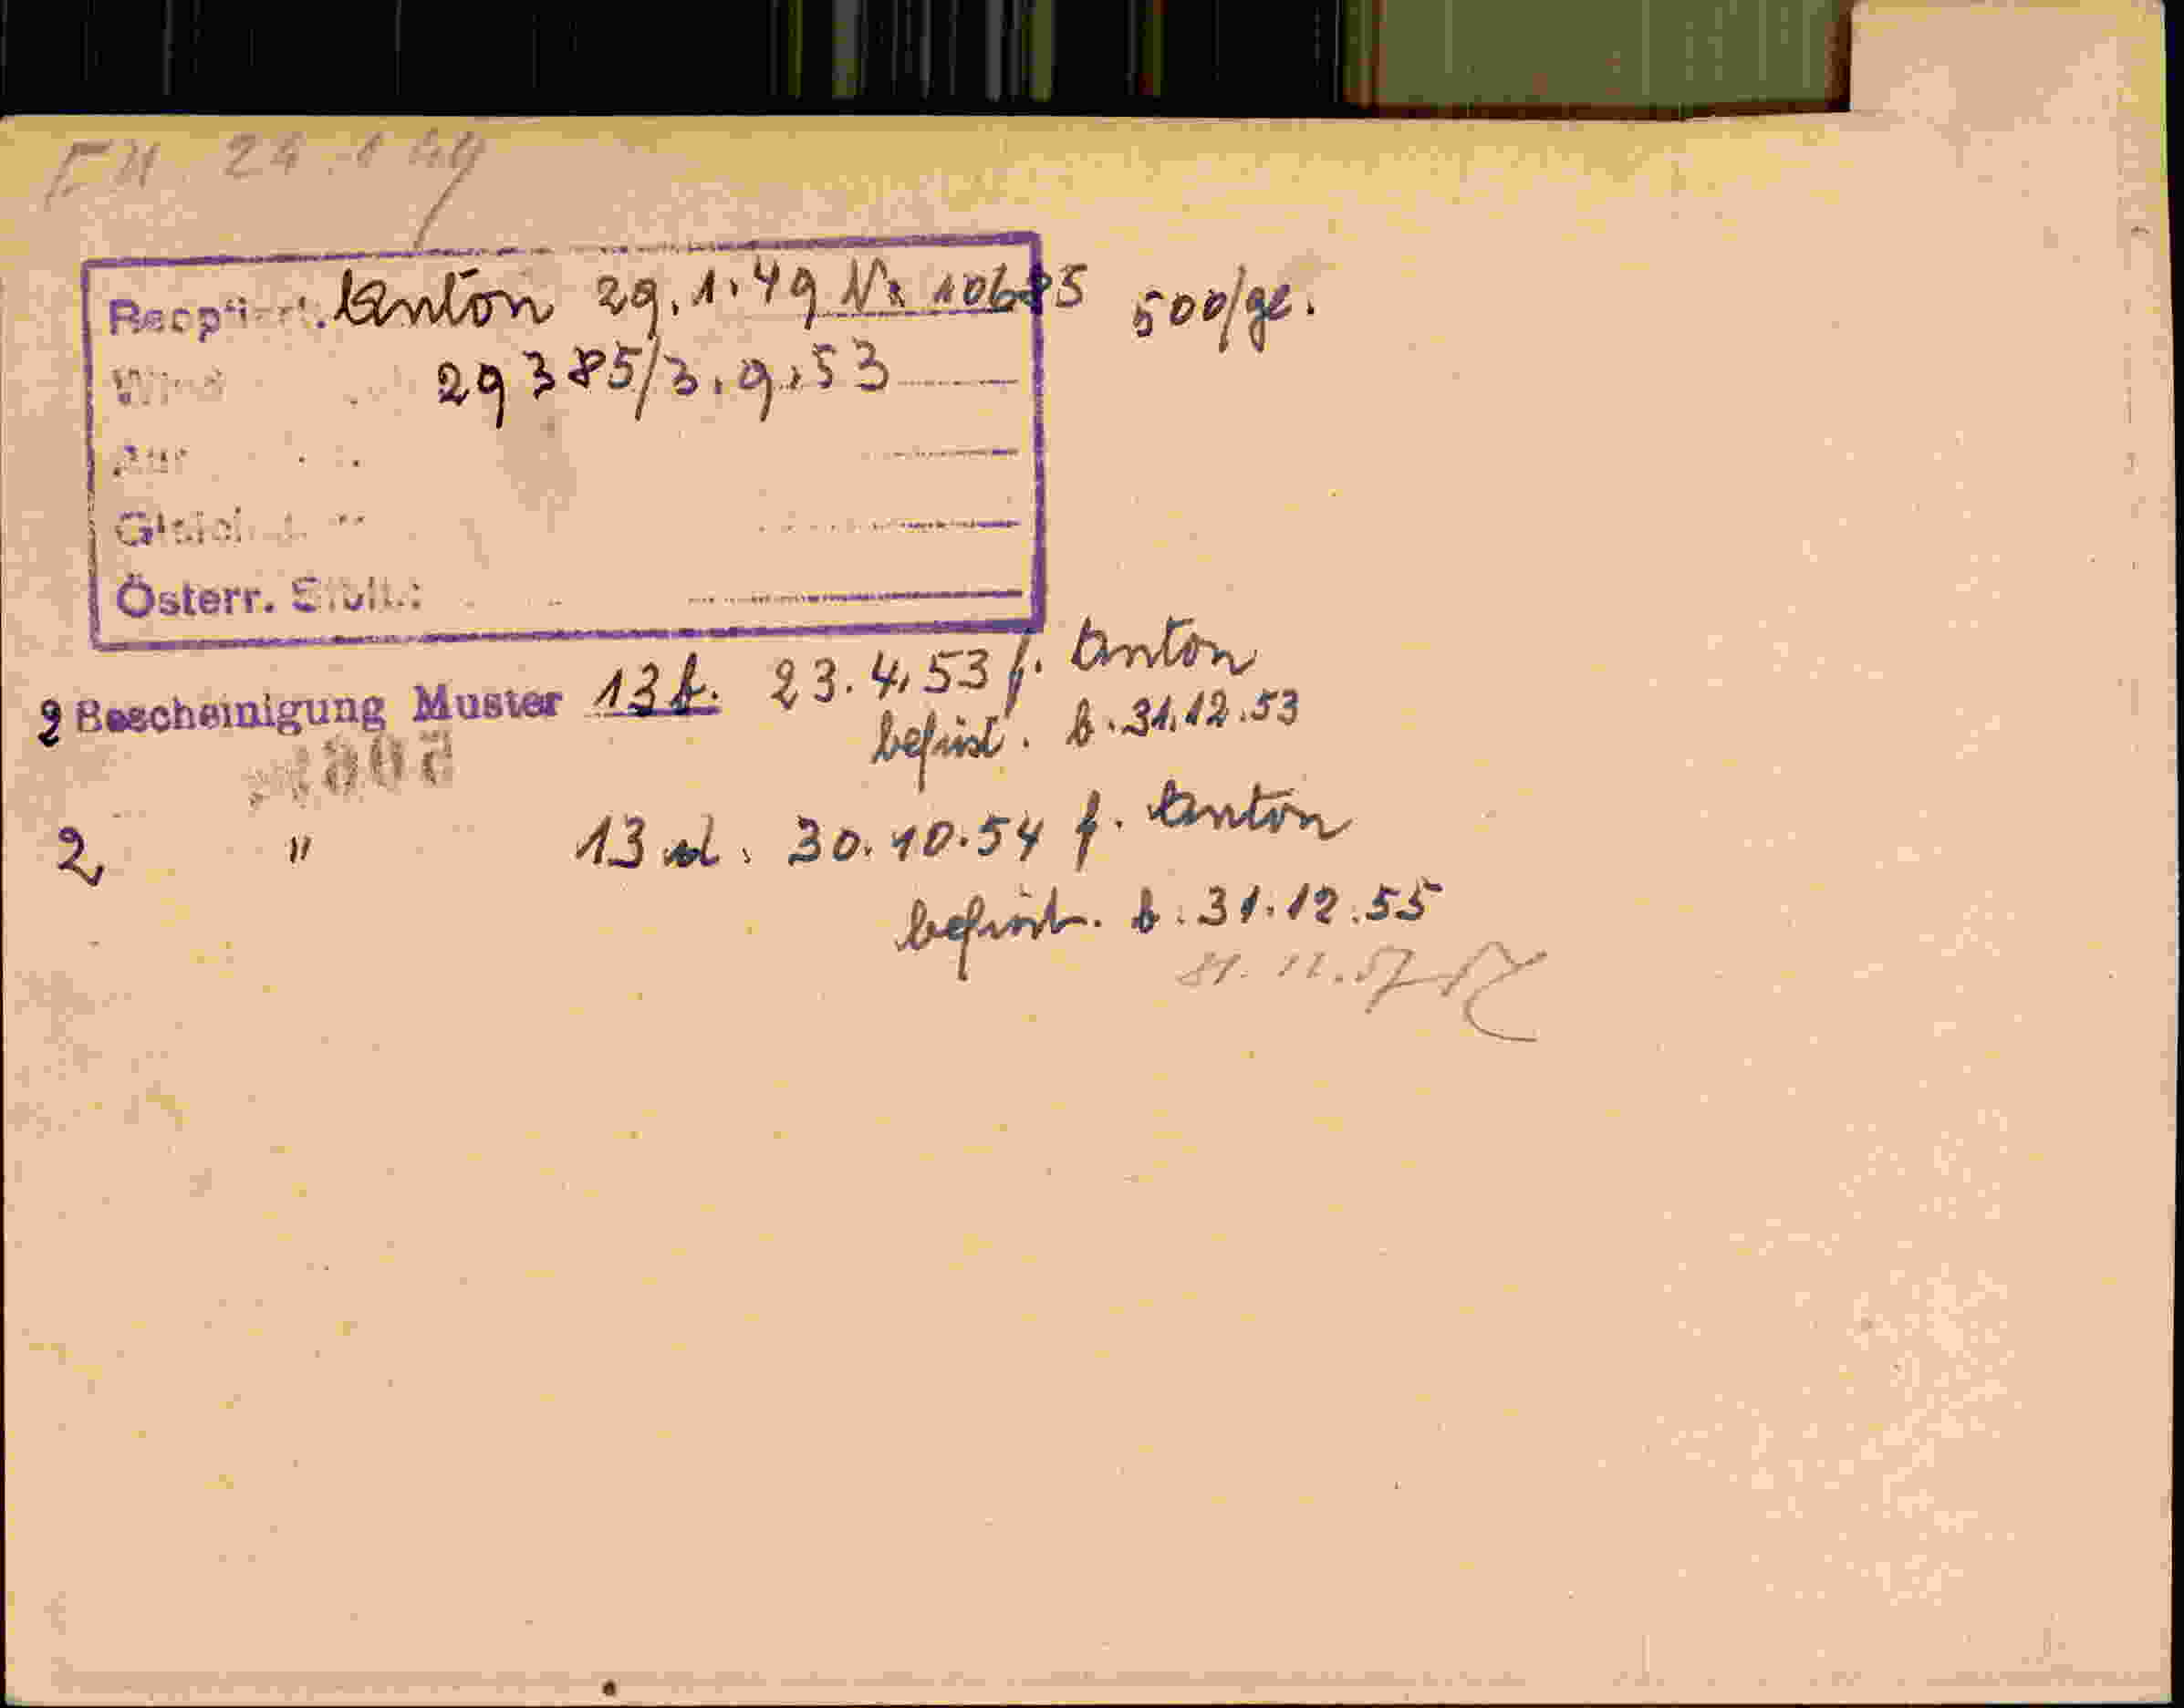 24.1.49
Reoptiert: Anton 29.1.49 Nr 10685 500/ge.
29385/3.9.53
Österr.
2 Bescheinigung Muster 13 b. 23.4.53 f. Anton
befrist. b. 31.12.53
2 " 13 d. 30.10.54 f. Anton
befrist. b. 31.12.55
31.12.57